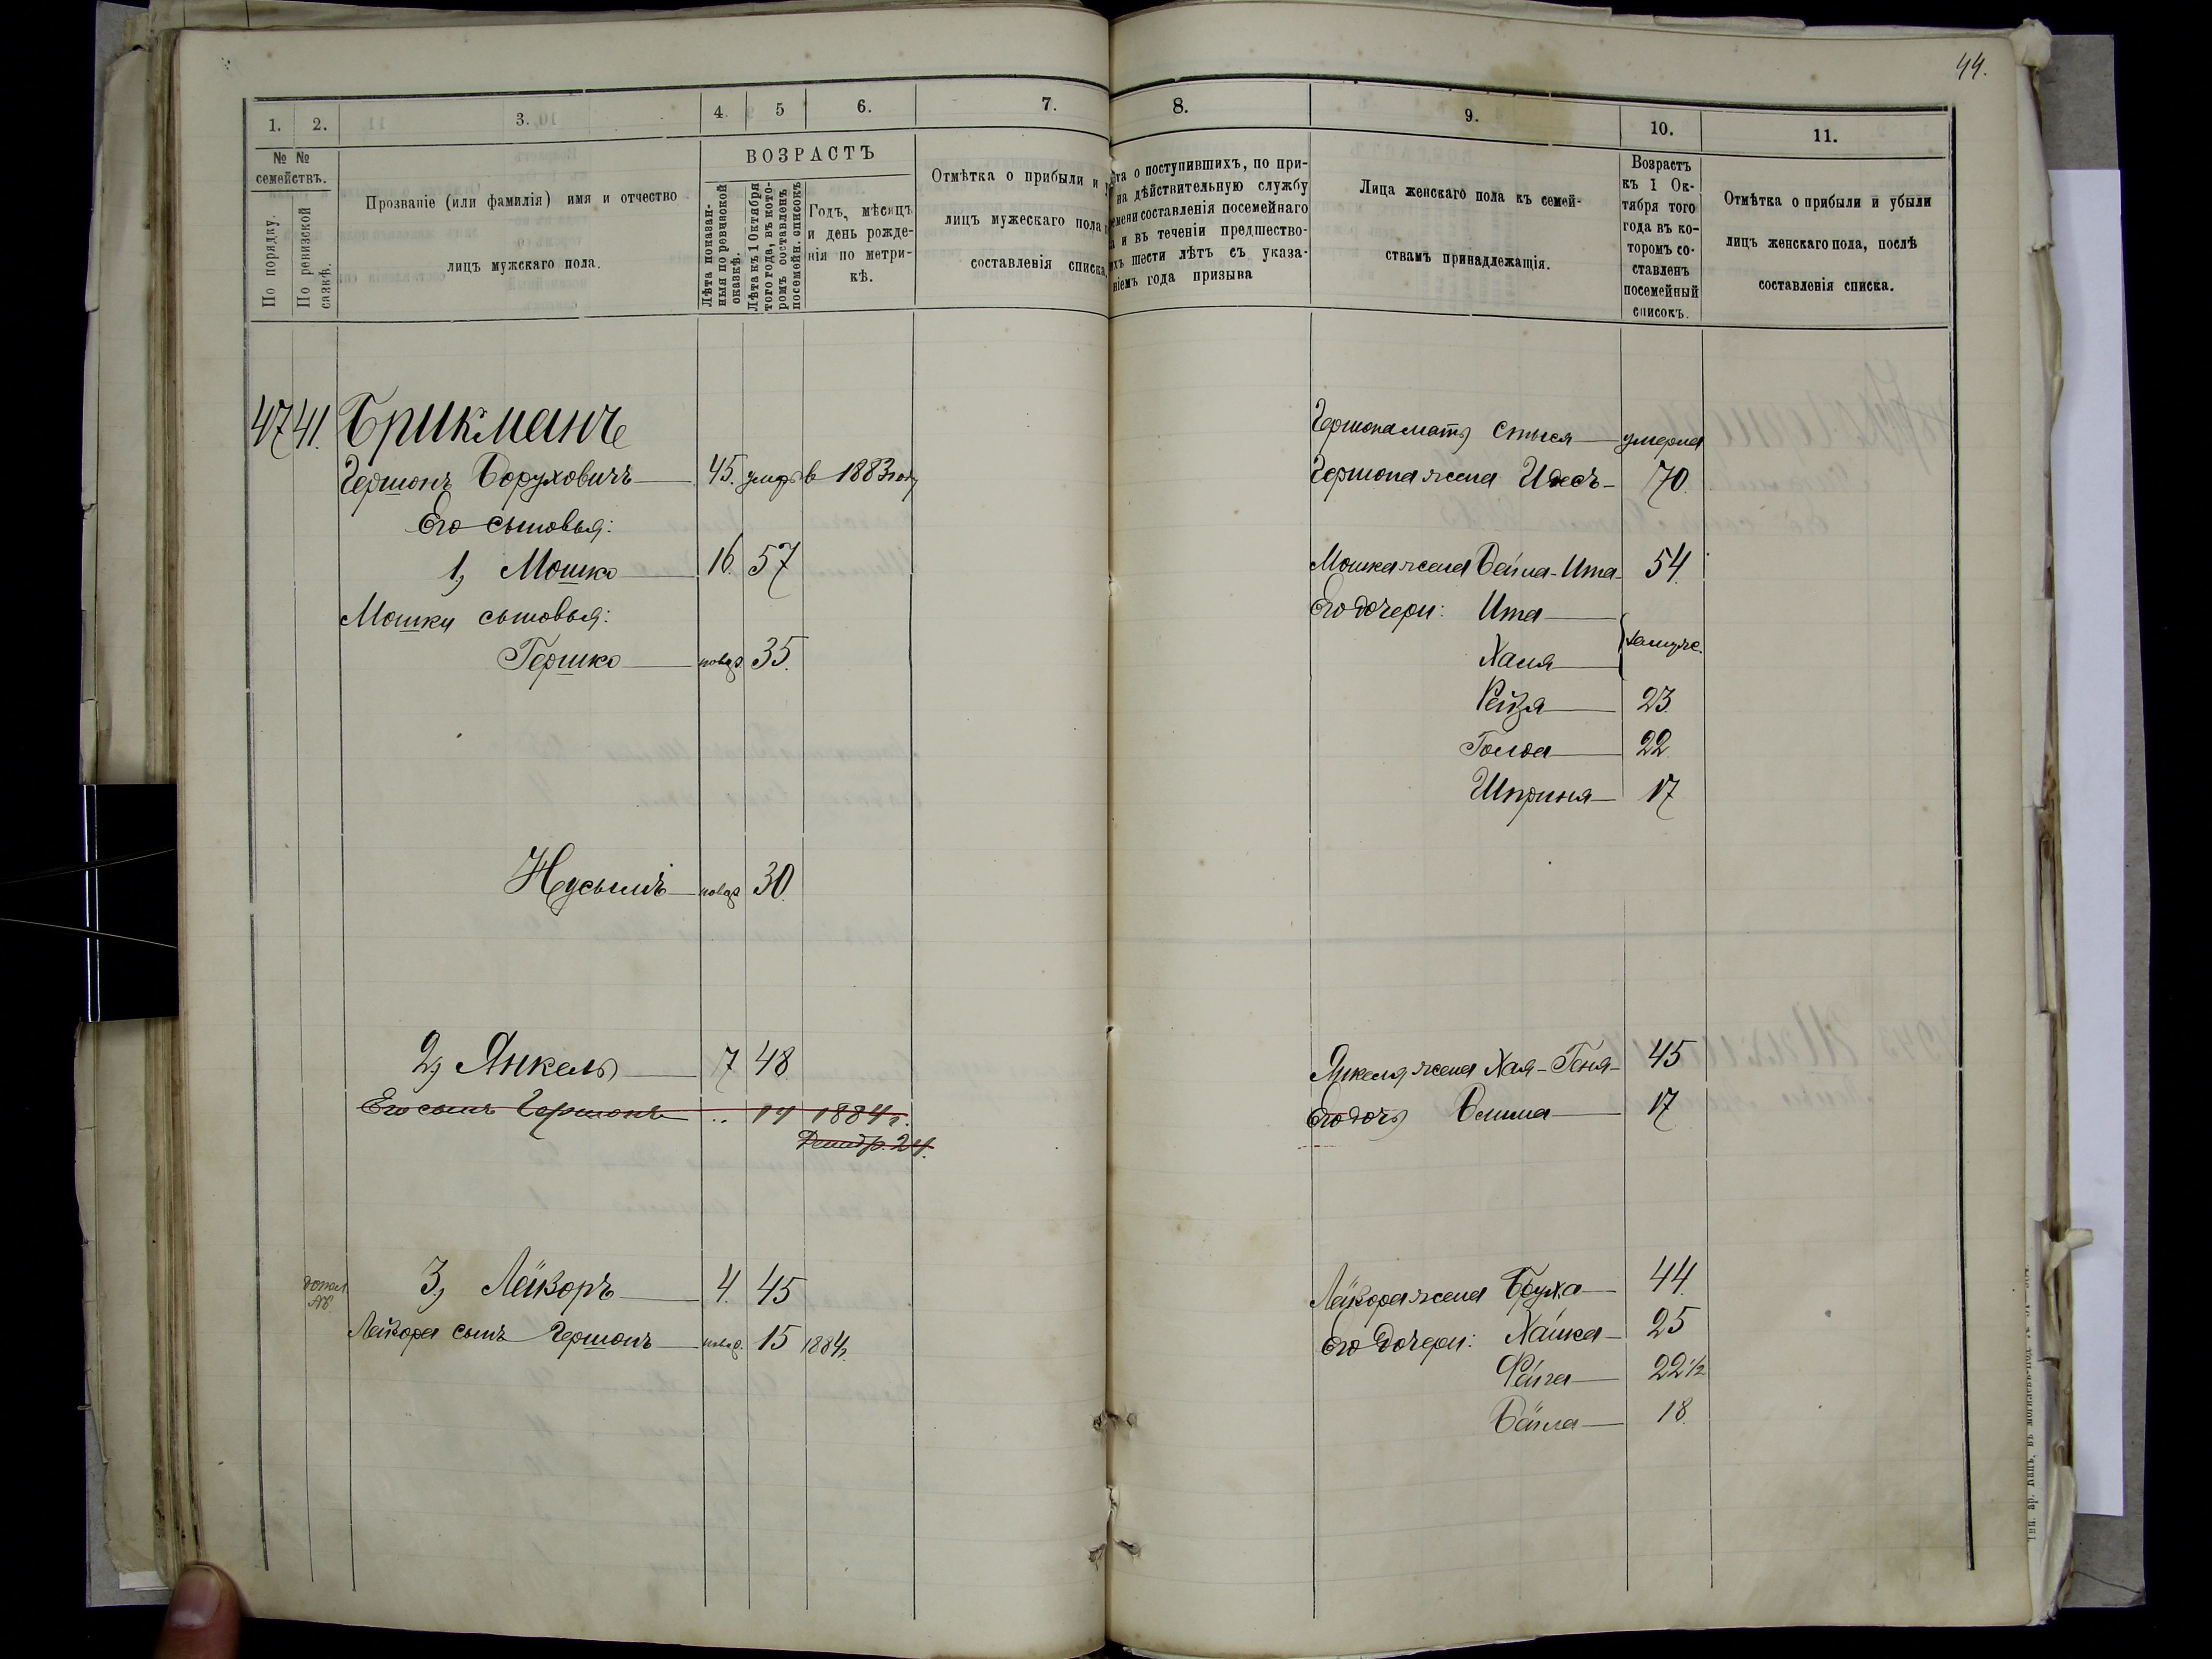 44.
1. 2. 3. 4. 5 6. 7.
№ № семействъ.
По порядку.
По ревизской сказкѣ.
Прозваніе (или фамилія) имя и отчество
лицъ мужскаго пола.
ВОЗРАСТЪ
Лѣта показан-
ныя по ревизской
сказкѣ.
Лѣта къ 1 Октября
того года, въ кото-
ромъ составленъ
посемейн. списокъ
Годъ, мѣсяцъ
и день рожде-
нія по метри-
кѣ.
Отмѣтка о прибыли и
лицъ мужескаго пола
составленія списка
47 41. Брикманъ
Гершонъ Боруховичъ 45. умеръ в 1883 году
Его сыновья:
1, Мошко 16. 57
Мошки сыновья:
Гершко новор. 35.
Нусымъ новор. 30.
2, Янкель 7 48
Его сынъ Гершонъ .. 14 1884 г.
Декабр. 24.
допол.
3, Лейзоръ 4. 45
Лейзора сынъ Гершонъ новор. 15 1884.
8. 9. 10. 11.
та о поступившихъ, по при-
на дѣйствительную службу
емени составленія посемейнаго
а и въ теченіи предшество-
ихъ шести лѣтъ съ указа-
ніемъ года призыва
Лица женскаго пола къ семей-
ствамъ принадлежащія.
Возрастъ
къ 1 Ок-
тября того
года въ ко-
торомъ со-
ставленъ
посемейный
списокъ.
Отмѣтка о прибыли и убыли
лицъ женскаго пола, послѣ
составленія списка.
Гершона мать Стыся умерла
Гершона жена Идесъ 70.
Мошка жена Бейла-Ита 54.
Его дочери: Ита
замуж.
Ханя
Рейзя 23.
Голда 22.
Шприня 17
Янкеля жена Хая-Геня 45
Его дочь Блима 17
Лейзора жена Бруха 44.
Его дочери: Хайка 25
Фейга 22 1/2
Бейла 18.